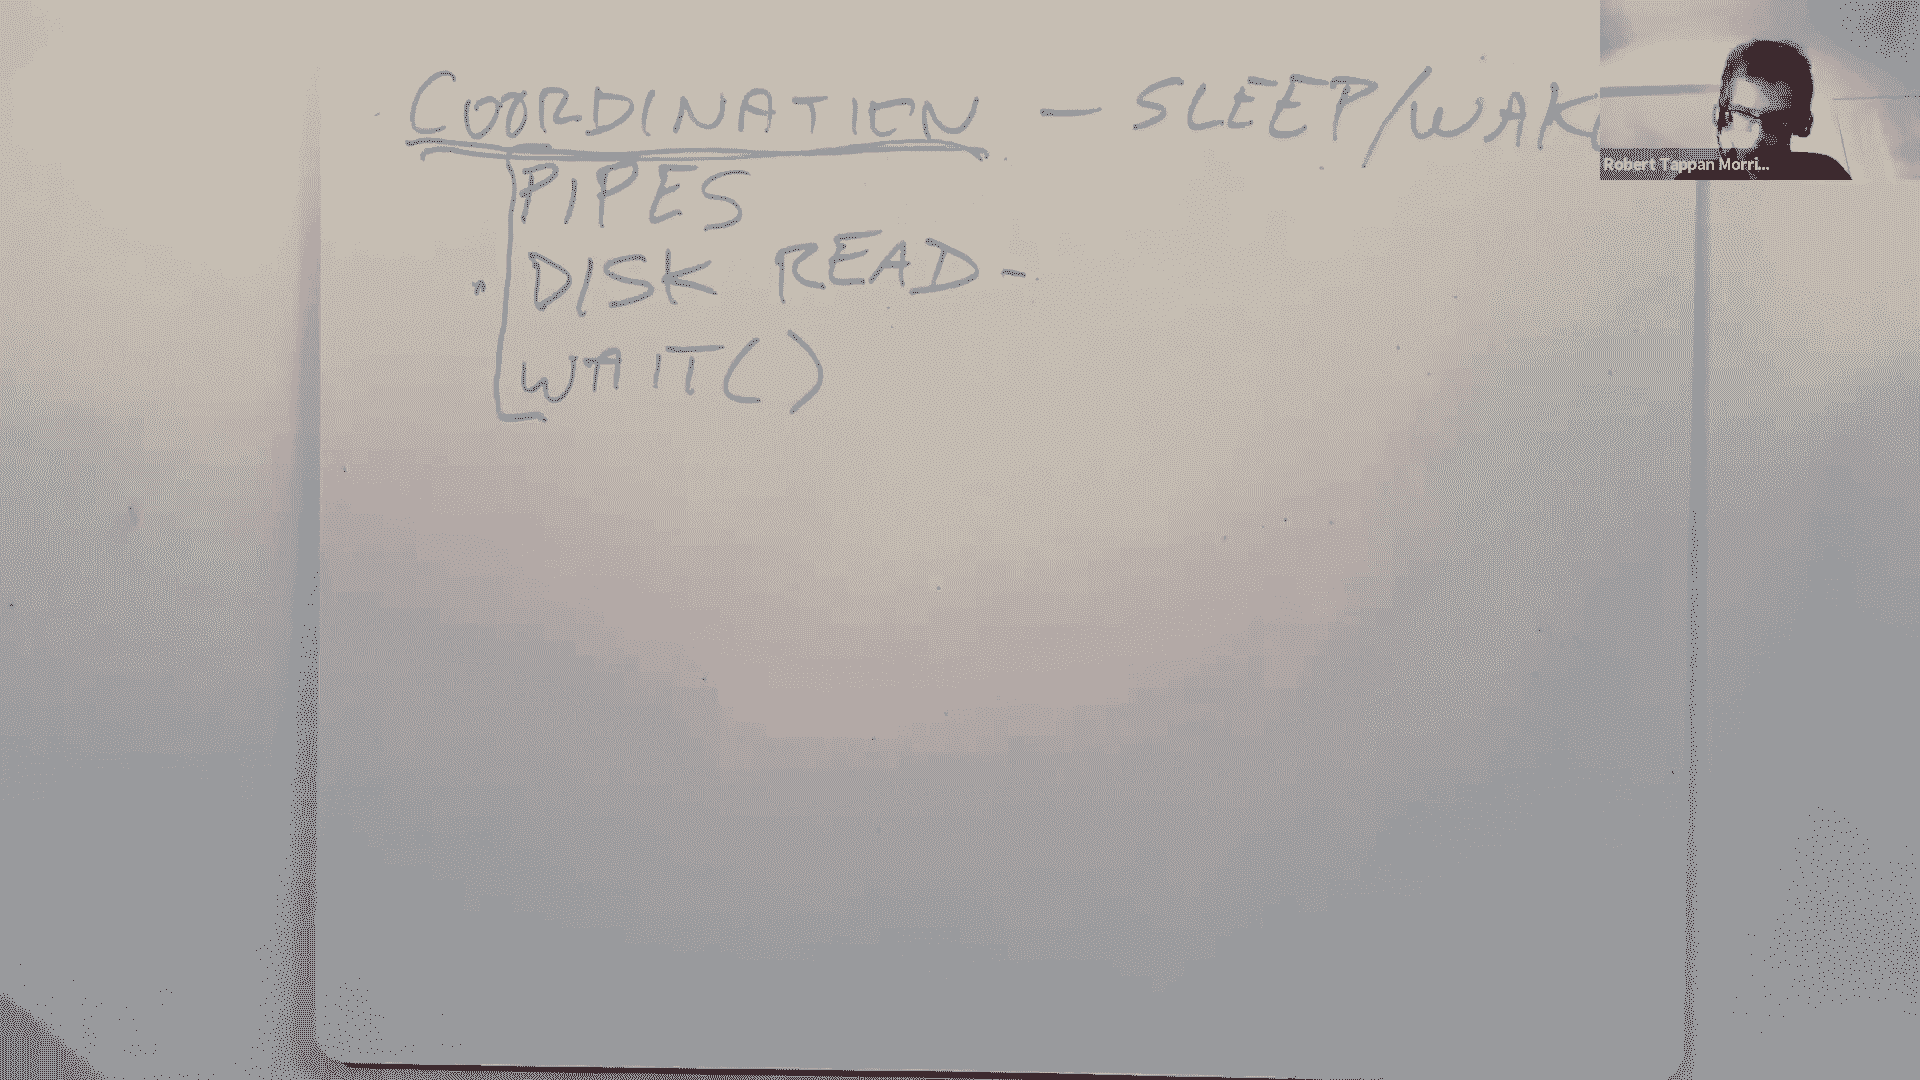 COORDINATION — SLEEP/WAK
PIPES
DISK READ -
WAIT()
Robert Tappan Morri...